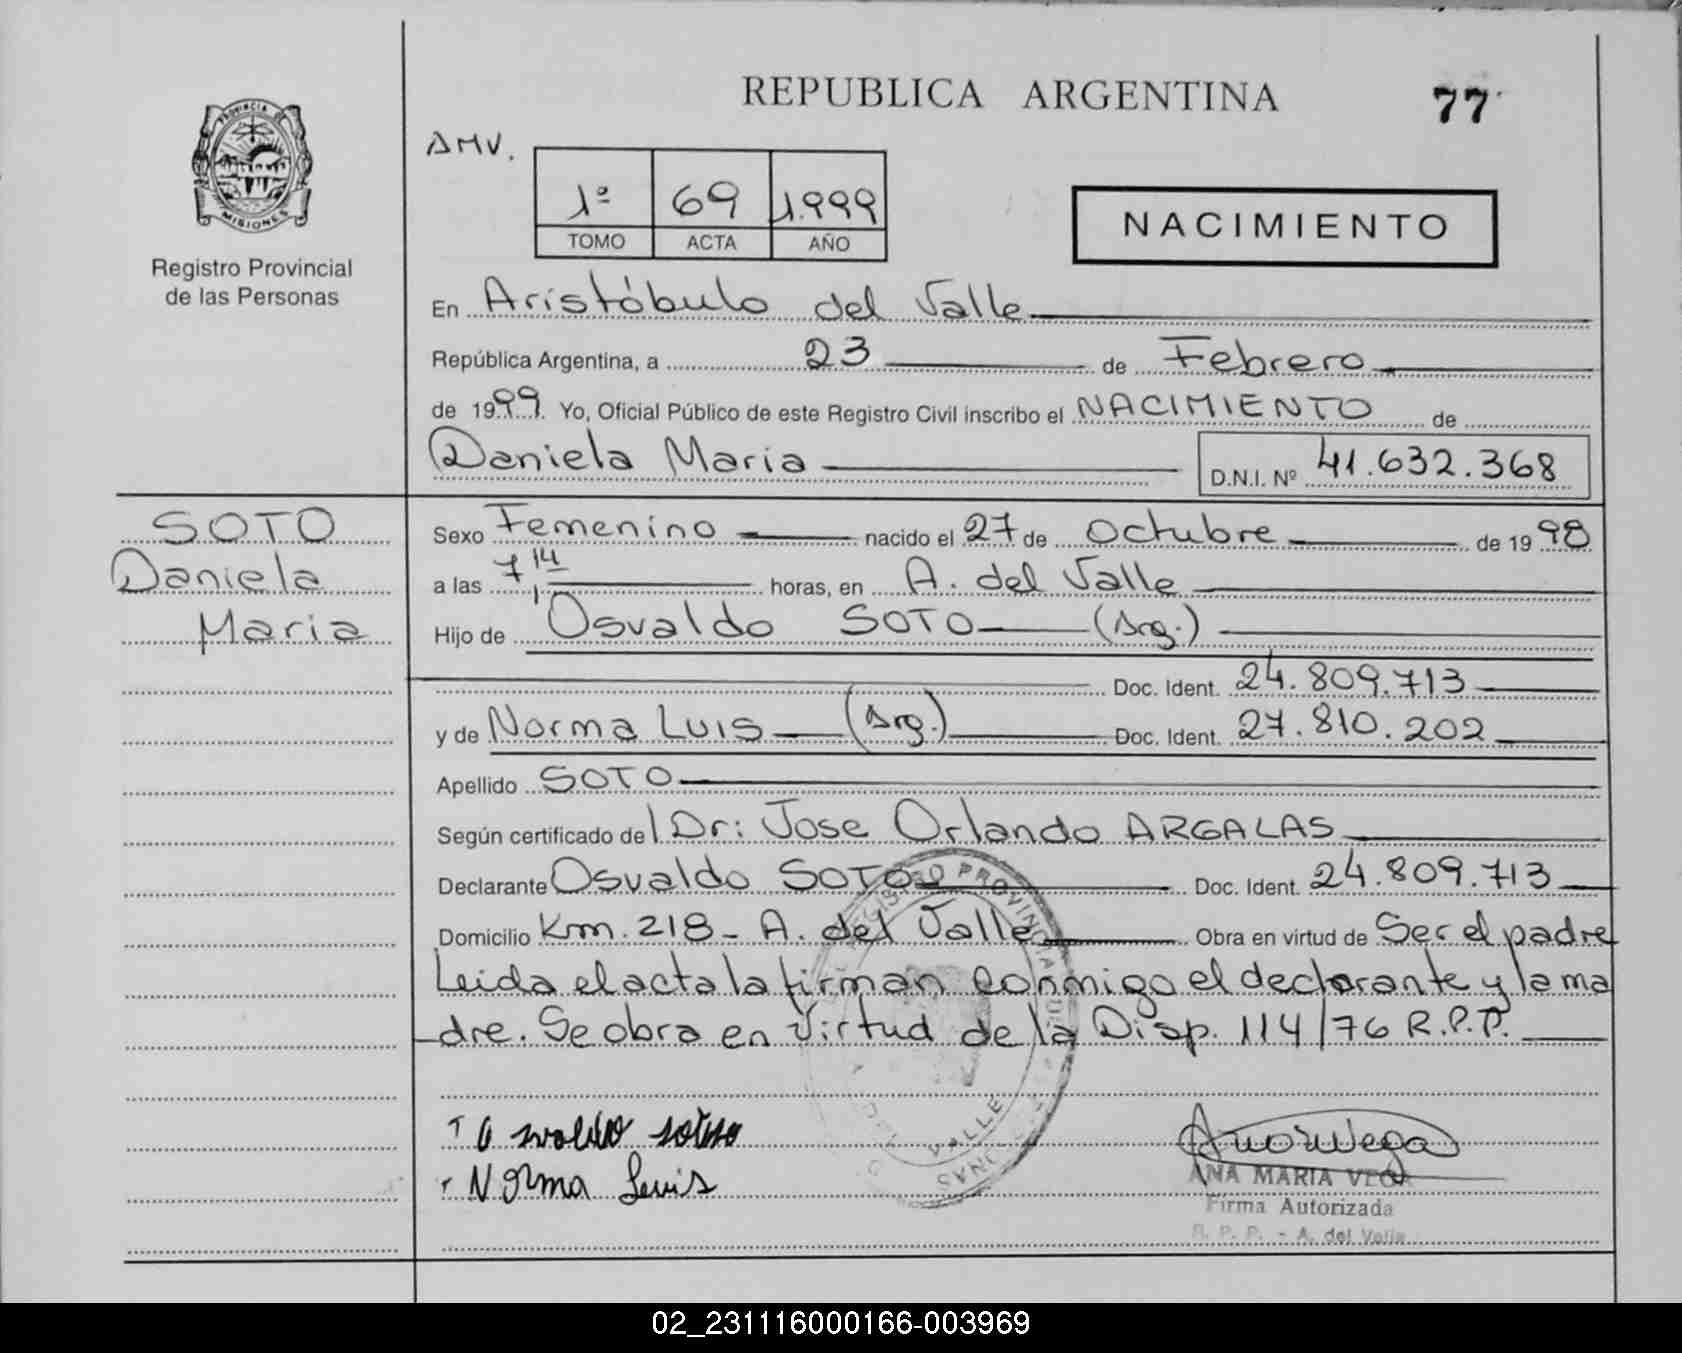 REPUBLICA ARGENTINA
77
AMV.
1º 69 1.999
TOMO ACTA AÑO
NACIMIENTO
PROVINCIA DE
MISIONES
Registro Provincial
de las Personas
En Aristóbulo del Valle
República Argentina, a 23 de Febrero
de 1999. Yo, Oficial Público de este Registro Civil inscribo el NACIMIENTO de
Daniela Maria D.N.I. Nº 41.632.368
SOTO
Daniela
Maria
Sexo Femenino nacido el 27 de Octubre de 1998
a las 7,14 horas, en A. del Valle
Hijo de Osvaldo SOTO (Arg.)
Doc. Ident. 24.809.713
y de Norma LUIS (Arg.) Doc. Ident. 27.810.202
Apellido SOTO
Según certificado del Dr: Jose Orlando ARGALAS
Declarante Osvaldo SOTO Doc. Ident. 24.809.713
Domicilio Km. 218 - A. del Valle Obra en virtud de Ser el padre
Leida el acta la firman conmigo el declarante y la ma
dre. Se obra en virtud de la Disp. 114/76 R.P.P.
Norma Luis
ANA MARIA VEGA
Firma Autorizada
R. P. P. - A. del Valle
REGISTRO PROVINCIAL
DEL VALLE
02_231116000166-003969